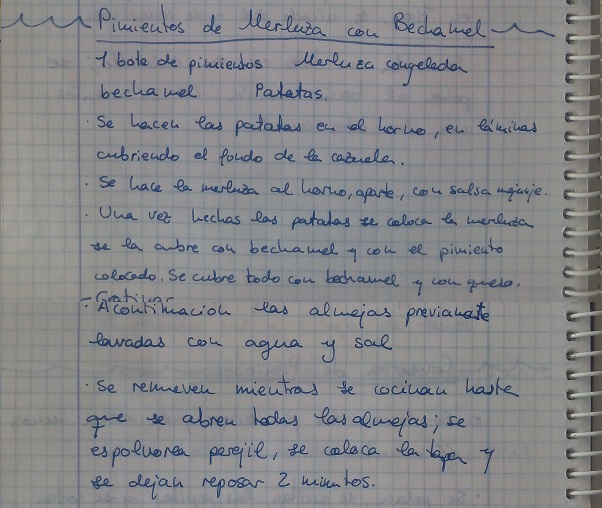 Pimientos de Merluza con Bechamel
1 bote de pimientos Merluza congelada
bechamel Patatas.
· Se hacen las patatas en el horno, en láminas
cubriendo el fondo de la cazuela.
· Se hace la merluza al horno, aparte, con salsa
· Una vez hechas las patatas se coloca la merluza
se la cubre con bechamel y con el pimiento
colocado. Se cubre todo con bechamel y con queso.
- Gratinar
· A continuación las almejas previamente
lavadas con agua y sal
· Se remueven mientras se cocinan hasta
que se abren todas las almejas; se
espolvorea perejil, se coloca la tapa y
se dejan reposar 2 minutos.